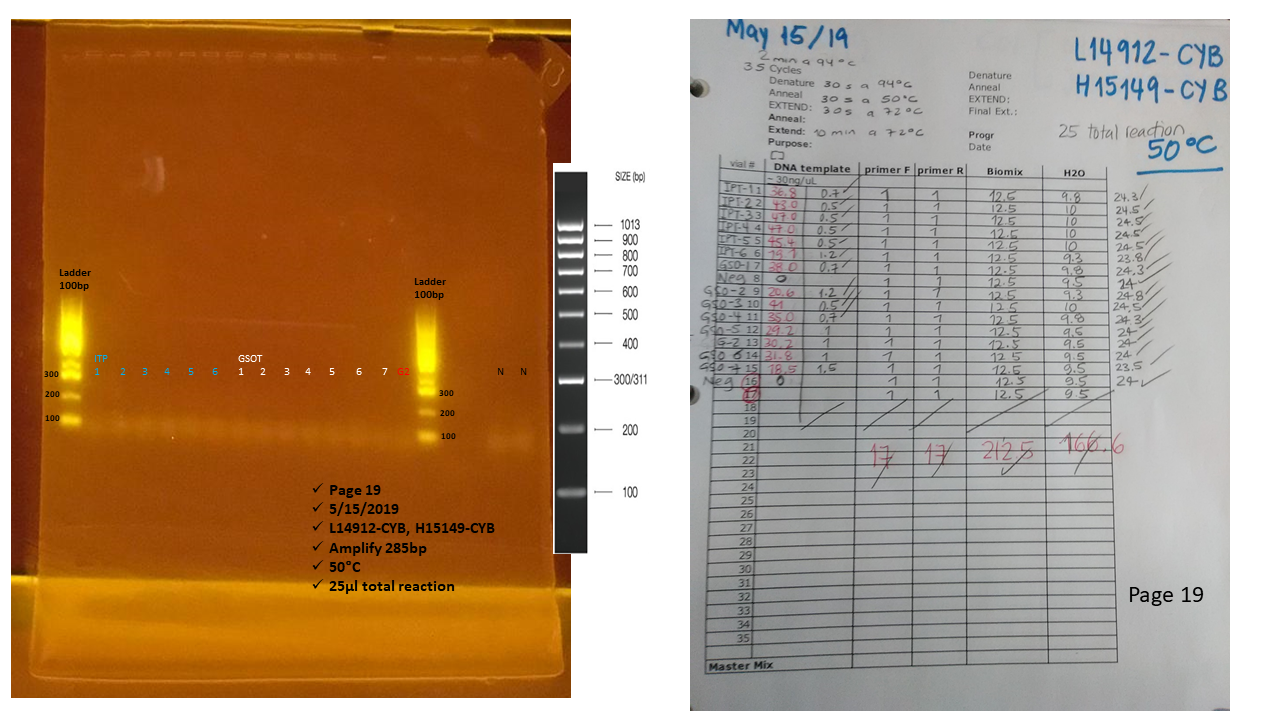 Ladder
100bp
300
200
100
ITP
1 2 3 4 5 6
GSOT
1 2 3 4 5 6 7 G2
Ladder
100bp
300
200
100
N N
✓ Page 19
✓ 5/15/2019
✓ L14912-CYB, H15149-CYB
✓ Amplify 285bp
✓ 50°C
✓ 25µl total reaction
SIZE (bp)
1013
900
800
700
600
500
400
300/311
200
100
May 15/19
L14912-CYB
H15149-CYB
2 min a 94°C
35 Cycles
Denature 30 s a 94°C
Anneal 30 s a 50°C
EXTEND: 30s a 72°C
Anneal:
Extend: 10 min a 72°C
Purpose:
Denature
Anneal
EXTEND:
Final Ext.:
Progr
Date
25 total reaction
50°C
vial # DNA template primer F primer R Biomix H2O
~30ng/uL
IPT-1 1 36.8 0.7 1 1 12.5 9.8 24.3
IPT-2 2 43.0 0.5 1 1 12.5 10 24.5
IPT-3 3 47.0 0.5 1 1 12.5 10 24.5
IPT-4 4 47.0 0.5 1 1 12.5 10 24.5
IPT-5 5 45.4 0.5 1 1 12.5 10 24.5
IPT-6 6 1.2 1 1 12.5 9.3 23.8
GSO-1 7 38.0 0.7 1 1 12.5 9.8 24.3
Neg 8 0 1 1 12.5 9.5 24
GSO-2 9 20.6 1.2 1 1 12.5 9.3 24.8
GSO-3 10 41 0.5 1 1 12.5 10 24.5
GSO-4 11 35.0 0.7 1 1 12.5 9.8 24.3
GSO-5 12 29.2 1 1 1 12.5 9.5 24
G-2 13 30.2 1 1 1 12.5 9.5 24
GSO 6 14 31.8 1 1 1 12.5 9.5 24
GSO-7 15 18.5 1.5 1 1 12.5 9.5 23.5
Neg 16 0 1 1 12.5 9.5 24
17 1 1 12.5 9.5
18
19
20
21
22
17 17 212.5 166.6
23
24
25
26
27
28
29
30
31
32
33
34
35
Master Mix
Page 19